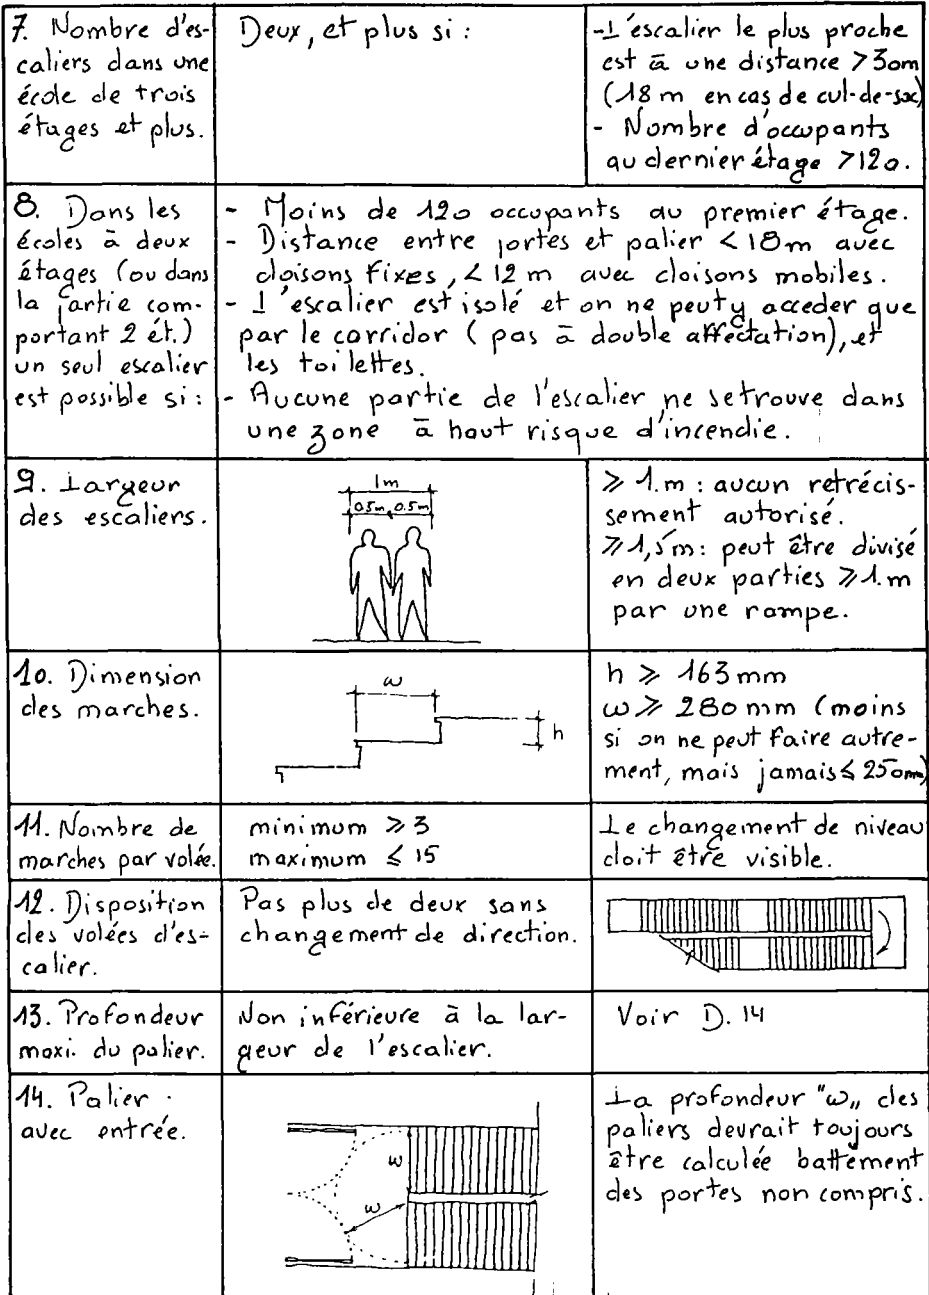 7. Nombre d'es-
caliers dans une
école de trois
étages et plus.
Deux, et plus si :
- L'escalier le plus proche
est à une distance > 30m
(18 m en cas de cul-de-sac)
- Nombre d'occupants
au dernier étage > 120.
8. Dans les
écoles à deux
étages (ou dans
la partie com-
portant 2 ét.)
un seul escalier
est possible si :
- Moins de 120 occupants au premier étage.
- Distance entre portes et palier < 18m avec
cloisons fixes, < 12 m avec cloisons mobiles.
- L'escalier est isolé et on ne peut y acceder que
par le corridor (pas à double affectation), et
les toilettes.
- Aucune partie de l'escalier ne se trouve dans
une zone à haut risque d'incendie.
9. Largeur
des escaliers.
1m
0.5m 0.5m
≥ 1.m : aucun retrécis-
sement autorisé.
≥ 1,5m : peut être divisé
en deux parties ≥ 1.m
par une rampe.
10. Dimension
des marches.
w
h
h ≥ 163 mm
w ≥ 280 mm (moins
si on ne peut faire autre-
ment, mais jamais ≤ 250mm)
11. Nombre de
marches par volée.
minimum ≥ 3
maximum ≤ 15
Le changement de niveau
doit être visible.
12. Disposition
des volées d'es-
calier.
Pas plus de deux sans
changement de direction.
13. Profondeur
maxi. du palier.
Non inférieure à la lar-
geur de l'escalier.
Voir D. 14
14. Palier
avec entrée.
w
w
La profondeur "w" des
paliers devrait toujours
être calculée battement
des portes non compris.